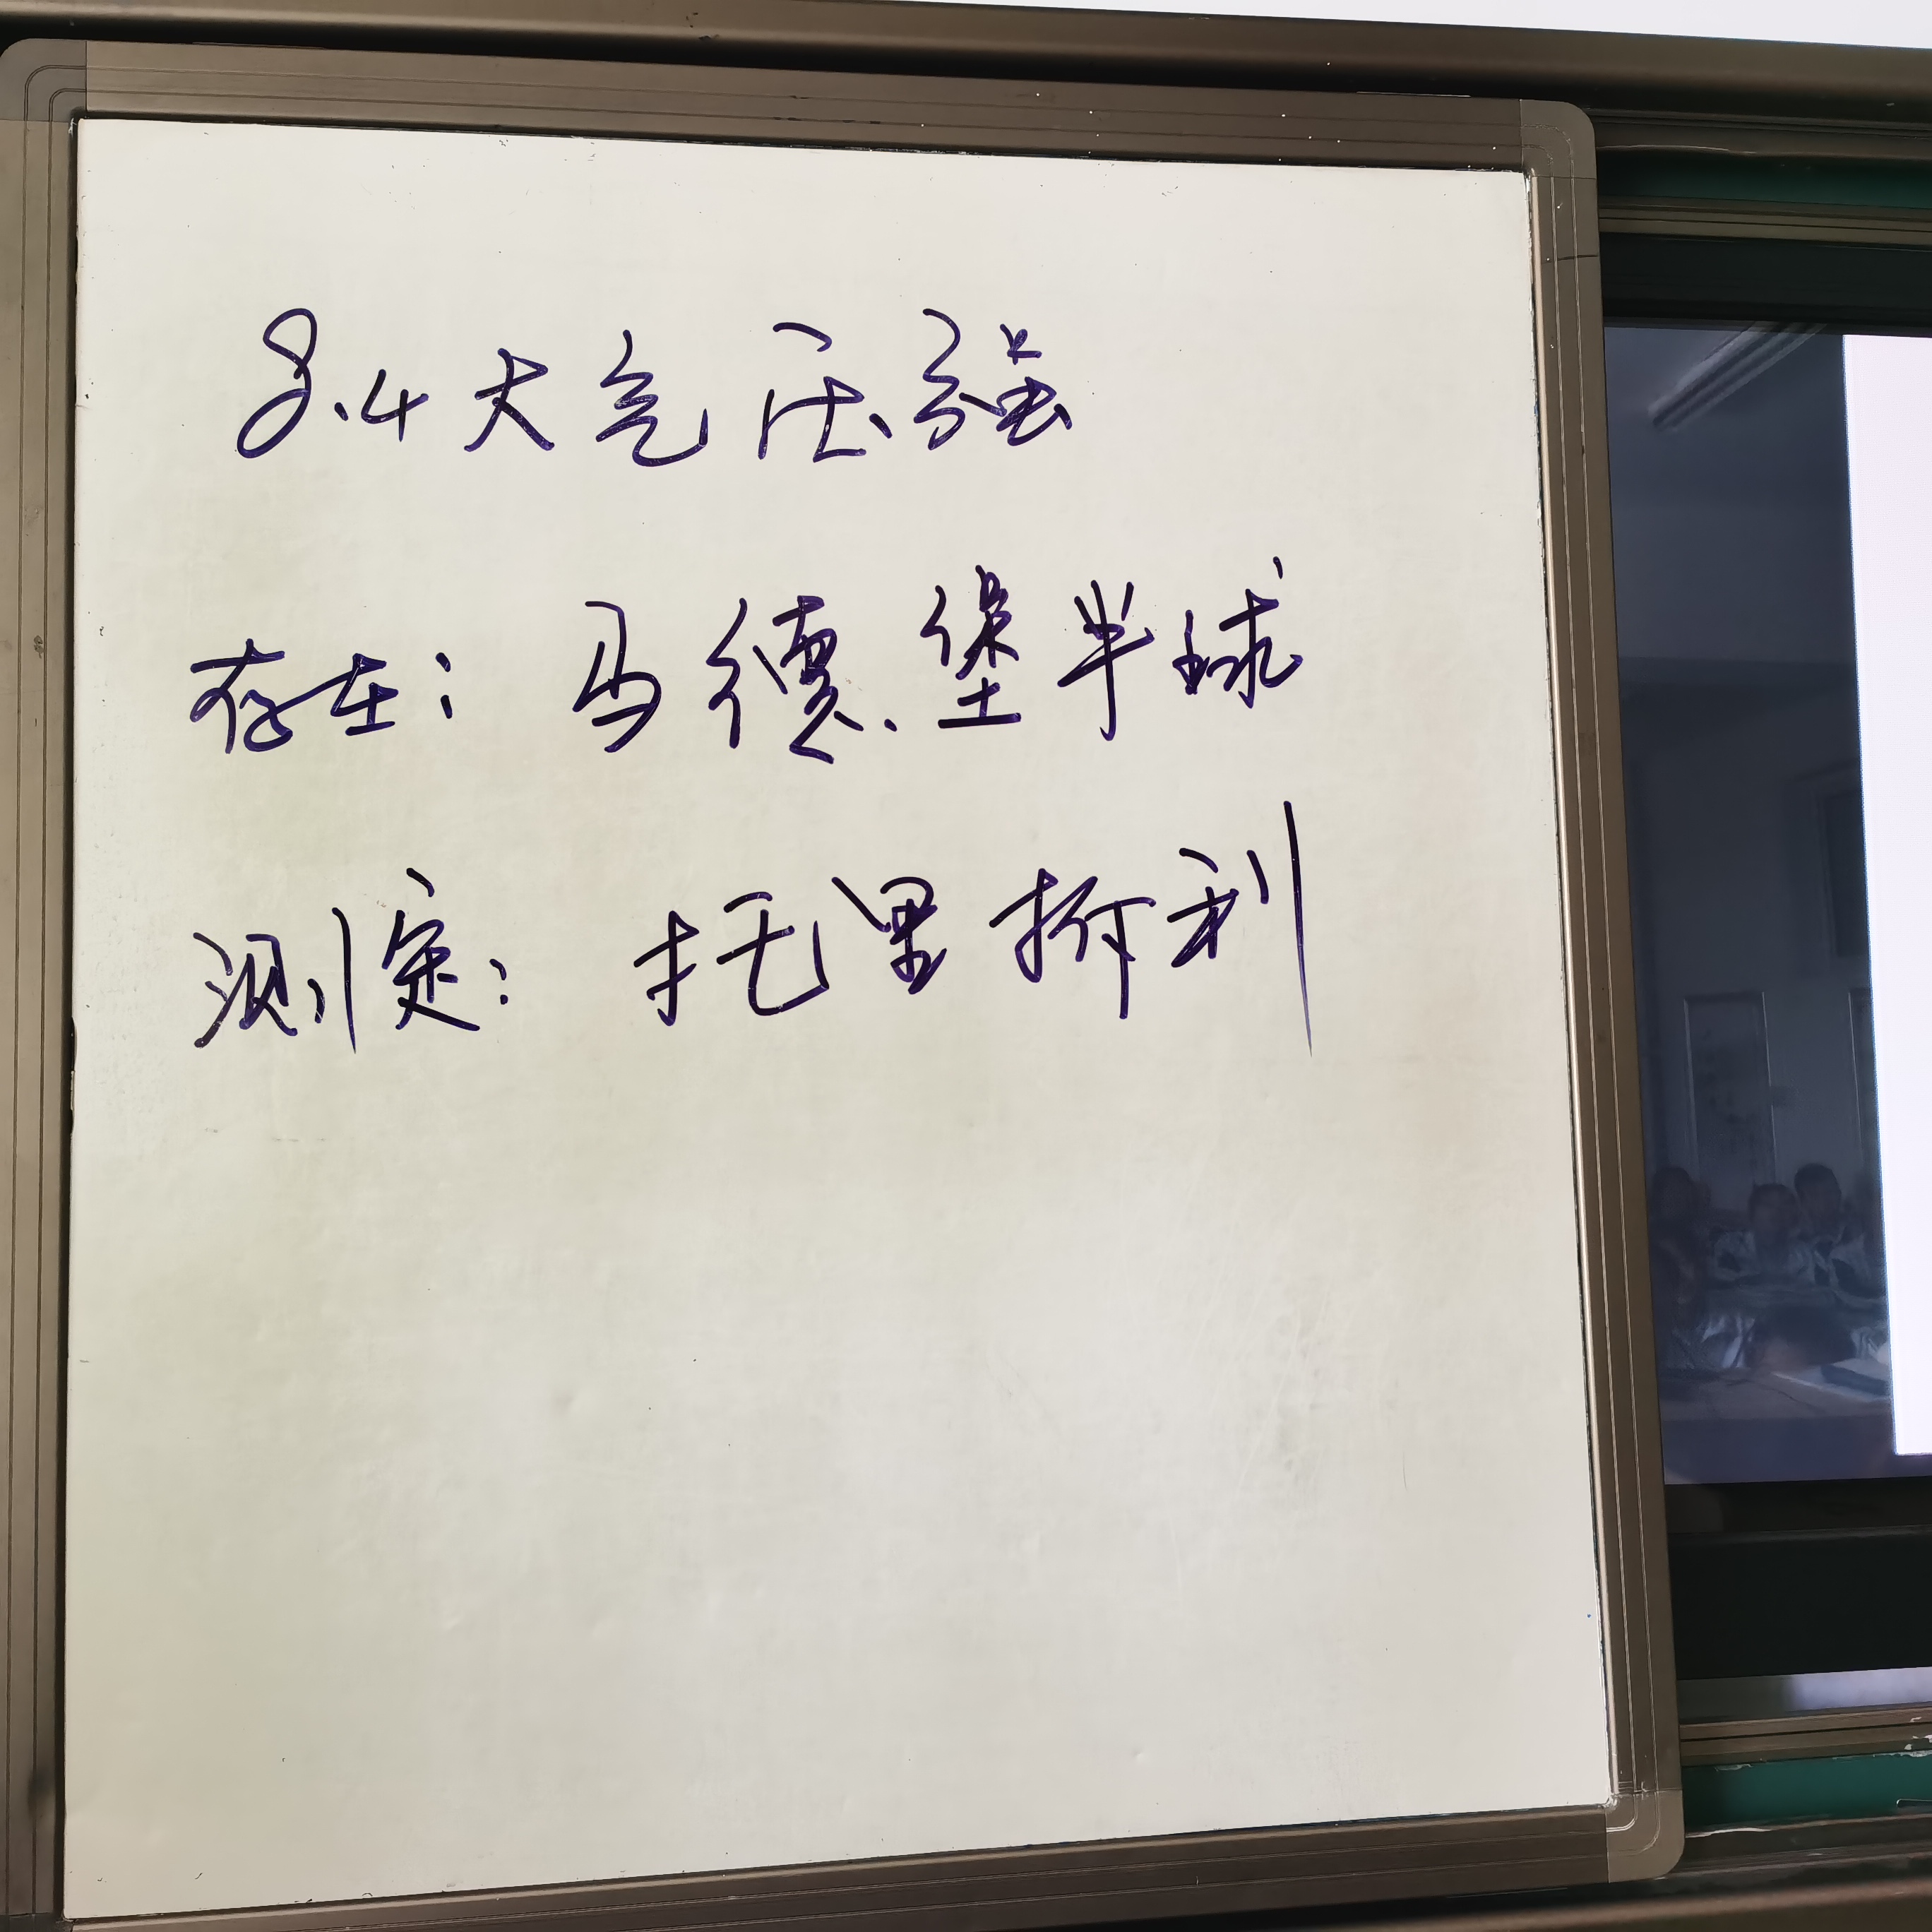 8.4大气压强
存在：马德堡半球
测定：托里拆利